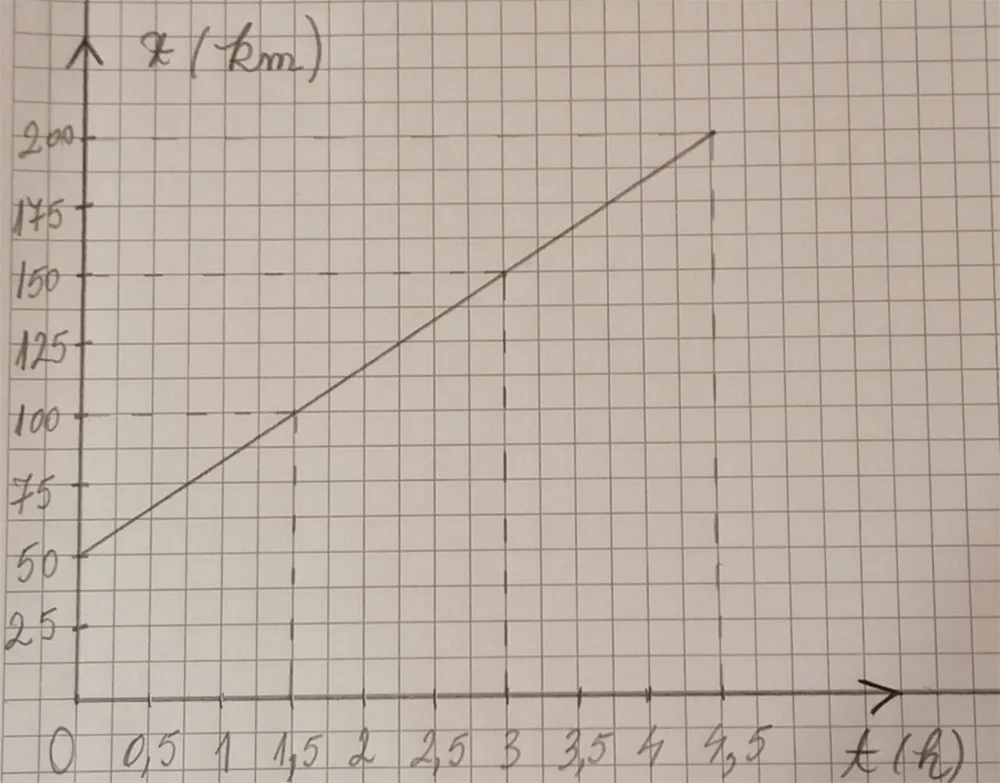 x (km)
200
175
150
125
100
75
50
25
0 0,5 1 1,5 2 2,5 3 3,5 4 4,5 t (h)